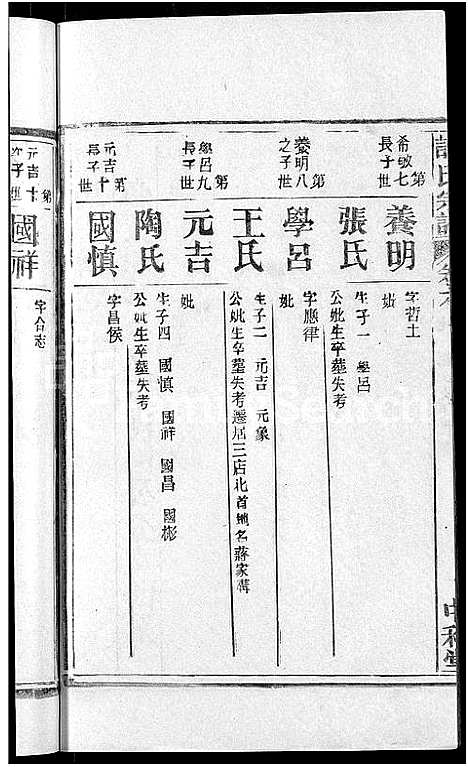 第七世
希敏長子
養明
字哲士
妣
張氏
生子一 學呂
公妣生卒墓失考
第八世
養明之子
學呂
字應律
妣
王氏
生子二 元吉 元象
公妣生卒墓失考遷居三店北首地名蔣家
第九世
學呂長子
元吉
妣
陶氏
生子四 國慎 國祥 國昌 國彬
公妣生卒墓失考
第十世
元吉長子
國慎
字昌侯
元吉
國祥
字合志